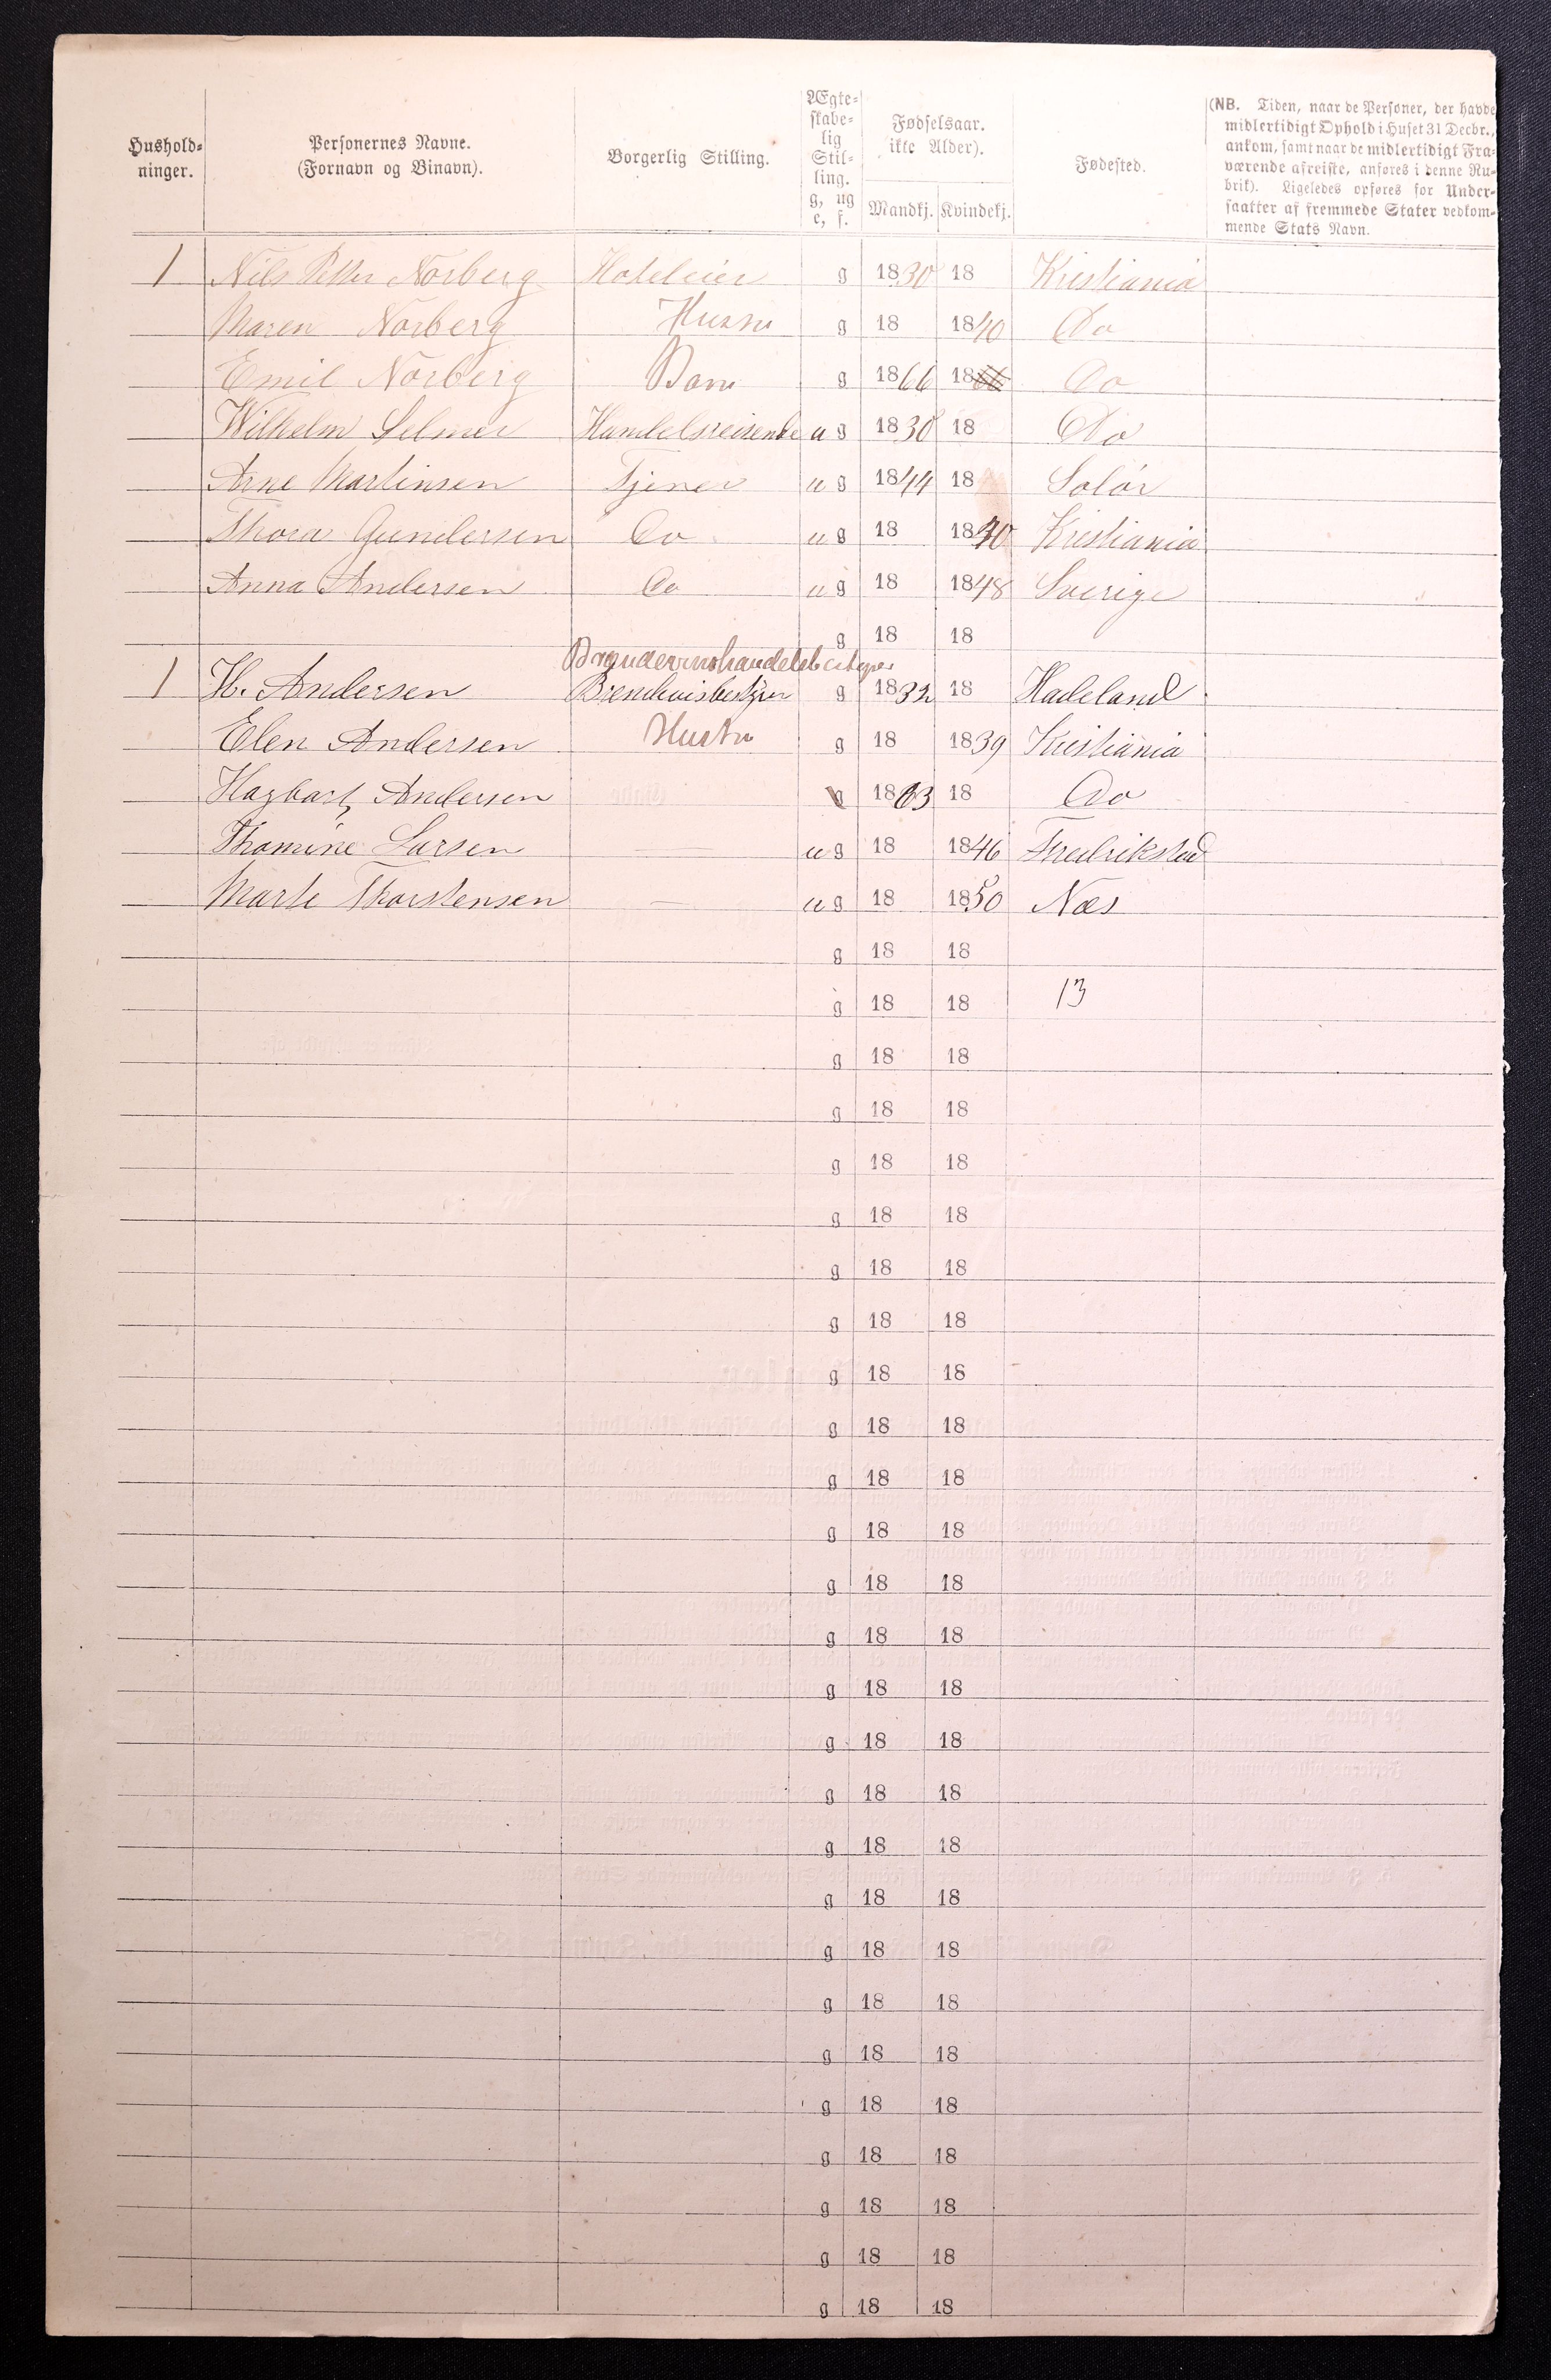 Hushold-
ninger.
Personernes Navne.
(Fornavn og Binavn).
Borgerlig Stilling.
Ægte-
skabe-
lig
Stil-
ling.
g, ug
e, f.
Fødselsaar.
ikke Alder).
Mandkj. Kvindekj.
Fødested.
(NB. Tiden, naar de Personer, der havde
midlertidigt Ophold i Huset 31 Decbr.,
ankom, samt naar de midlertidigt Fra-
værende afreiste, anføres i denne Ru-
brik). Ligeledes opføres for Under-
saatter af fremmede Stater vedkom-
mende Stats Navn.
1 Nils Petter Norberg Hoteleier g 1830 18 Kristiania
Maren Norberg Hustru g 18 1840 Do
Emil Norberg Barn g 1866 1866 Do
Wilhelm Selmer Handelsreisende u g 1830 18 Do
Arne Martinsen Tjener u g 1844 18 Solør
Thora Gundersen Do u g 18 1840 Kristiania
Anna Andersen Do u g 18 1848 Sverige
g 18 18
Brændevinshandelsbestyrer
1 H. Andersen g 1832 18 Hadeland
Elen Andersen Hustru g 18 1839 Kristiania
Hagbart Andersen g 1863 18 Do
Thomine Larsen — u g 18 1846 Fredrikstad
Marte Thorstensen — u g 18 1850 Næs
g 18 18
g 18 18 13
g 18 18
g 18 18
g 18 18
g 18 18
g 18 18
g 18 18
g 18 18
g 18 18
g 18 18
g 18 18
g 18 18
g 18 18
g 18 18
g 18 18
g 18 18
g 18 18
g 18 18
g 18 18
g 18 18
g 18 18
g 18 18
g 18 18
g 18 18
g 18 18
g 18 18